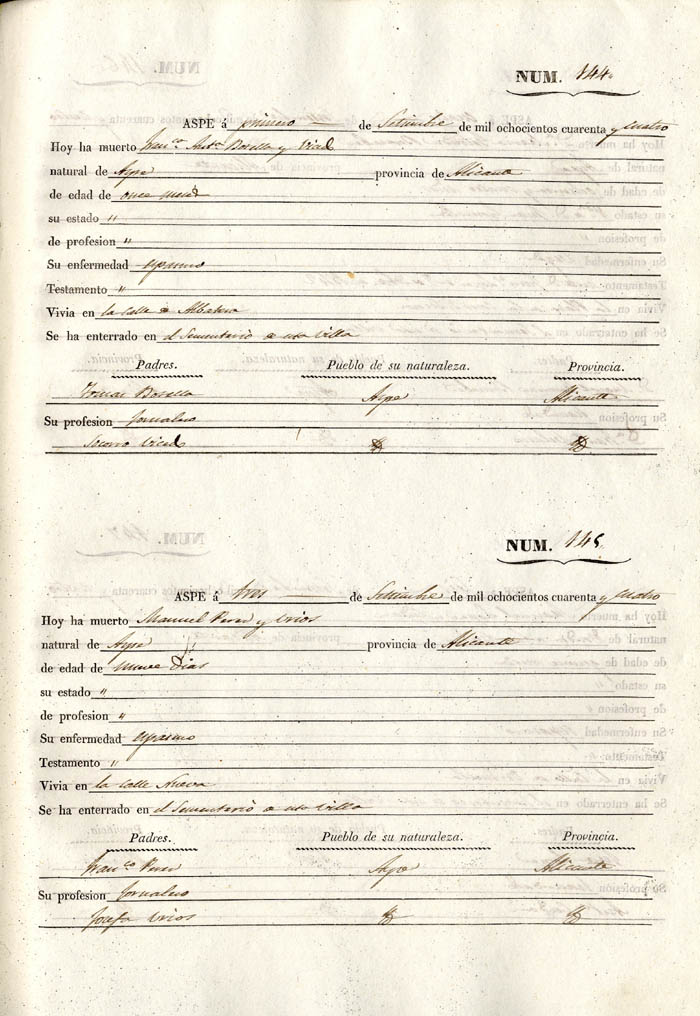 NUM. 144.
ASPE á primero de Setiembre de mil ochocientos cuarenta y cuatro
Hoy ha muerto Fran.co Ant.o Botella y Vicad
natural de Aspe provincia de Alicante
de edad de once meses
su estado "
de profesion "
Su enfermedad espasmo
Testamento "
Vivia en la calle de Albatera
Se ha enterrado en el Sementerio de esta villa
Padres. Pueblo de su naturaleza. Provincia.
Tomas Botella Aspe Alicante
Su profesion Jornalero
Socorro
NUM. 145.
ASPE á tres de Setiembre de mil ochocientos cuarenta y cuatro
Hoy ha muerto Manuel Perez y Urios
natural de Aspe provincia de Alicante
de edad de nueve Dias
su estado "
de profesion "
Su enfermedad espasmo
Testamento "
Vivia en la calle Nueva
Se ha enterrado en el Sementerio de esta villa
Padres. Pueblo de su naturaleza. Provincia.
Fran.co Perez Aspe Alicante
Su profesion Jornalero
Josefa Urios